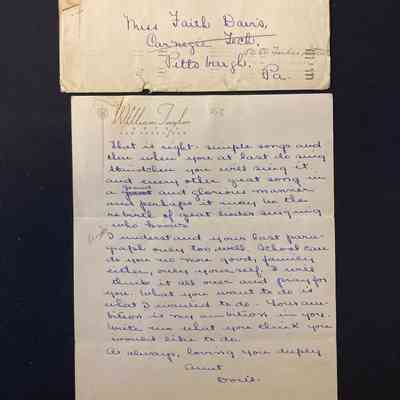 Miss Faith Davis,
Carnegie Tech.
Pittsburgh,
Pa.
William Taylor
That is right - simple songs and
then when you at last do sing
Standchen you will sing it
and every other great song in
a grand and glorious manner
and perhaps it may be the
rebirth of great lieder singing
who knows
I understand your last para-
graph only too well. School can
do you no more good, family
either, only yourself. I will
think it all over and pray for
you. What you want to do is
what I wanted to do. Your am-
bition is my ambition in you.
Write me what you think you
would like to do.
As always, loving you deeply
Aunt
Doris.